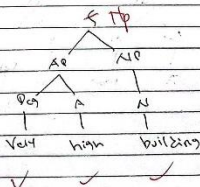 S NP
AP NP
Deg A N
Very high building